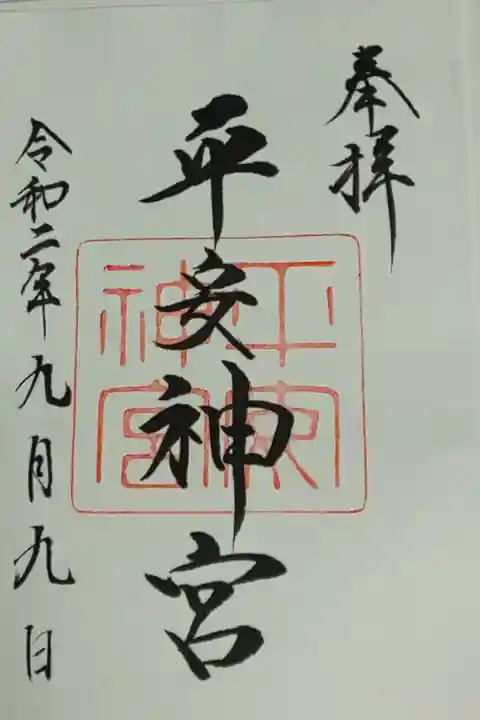 奉拝
平安神宮
令和二年九月九日
平安神宮